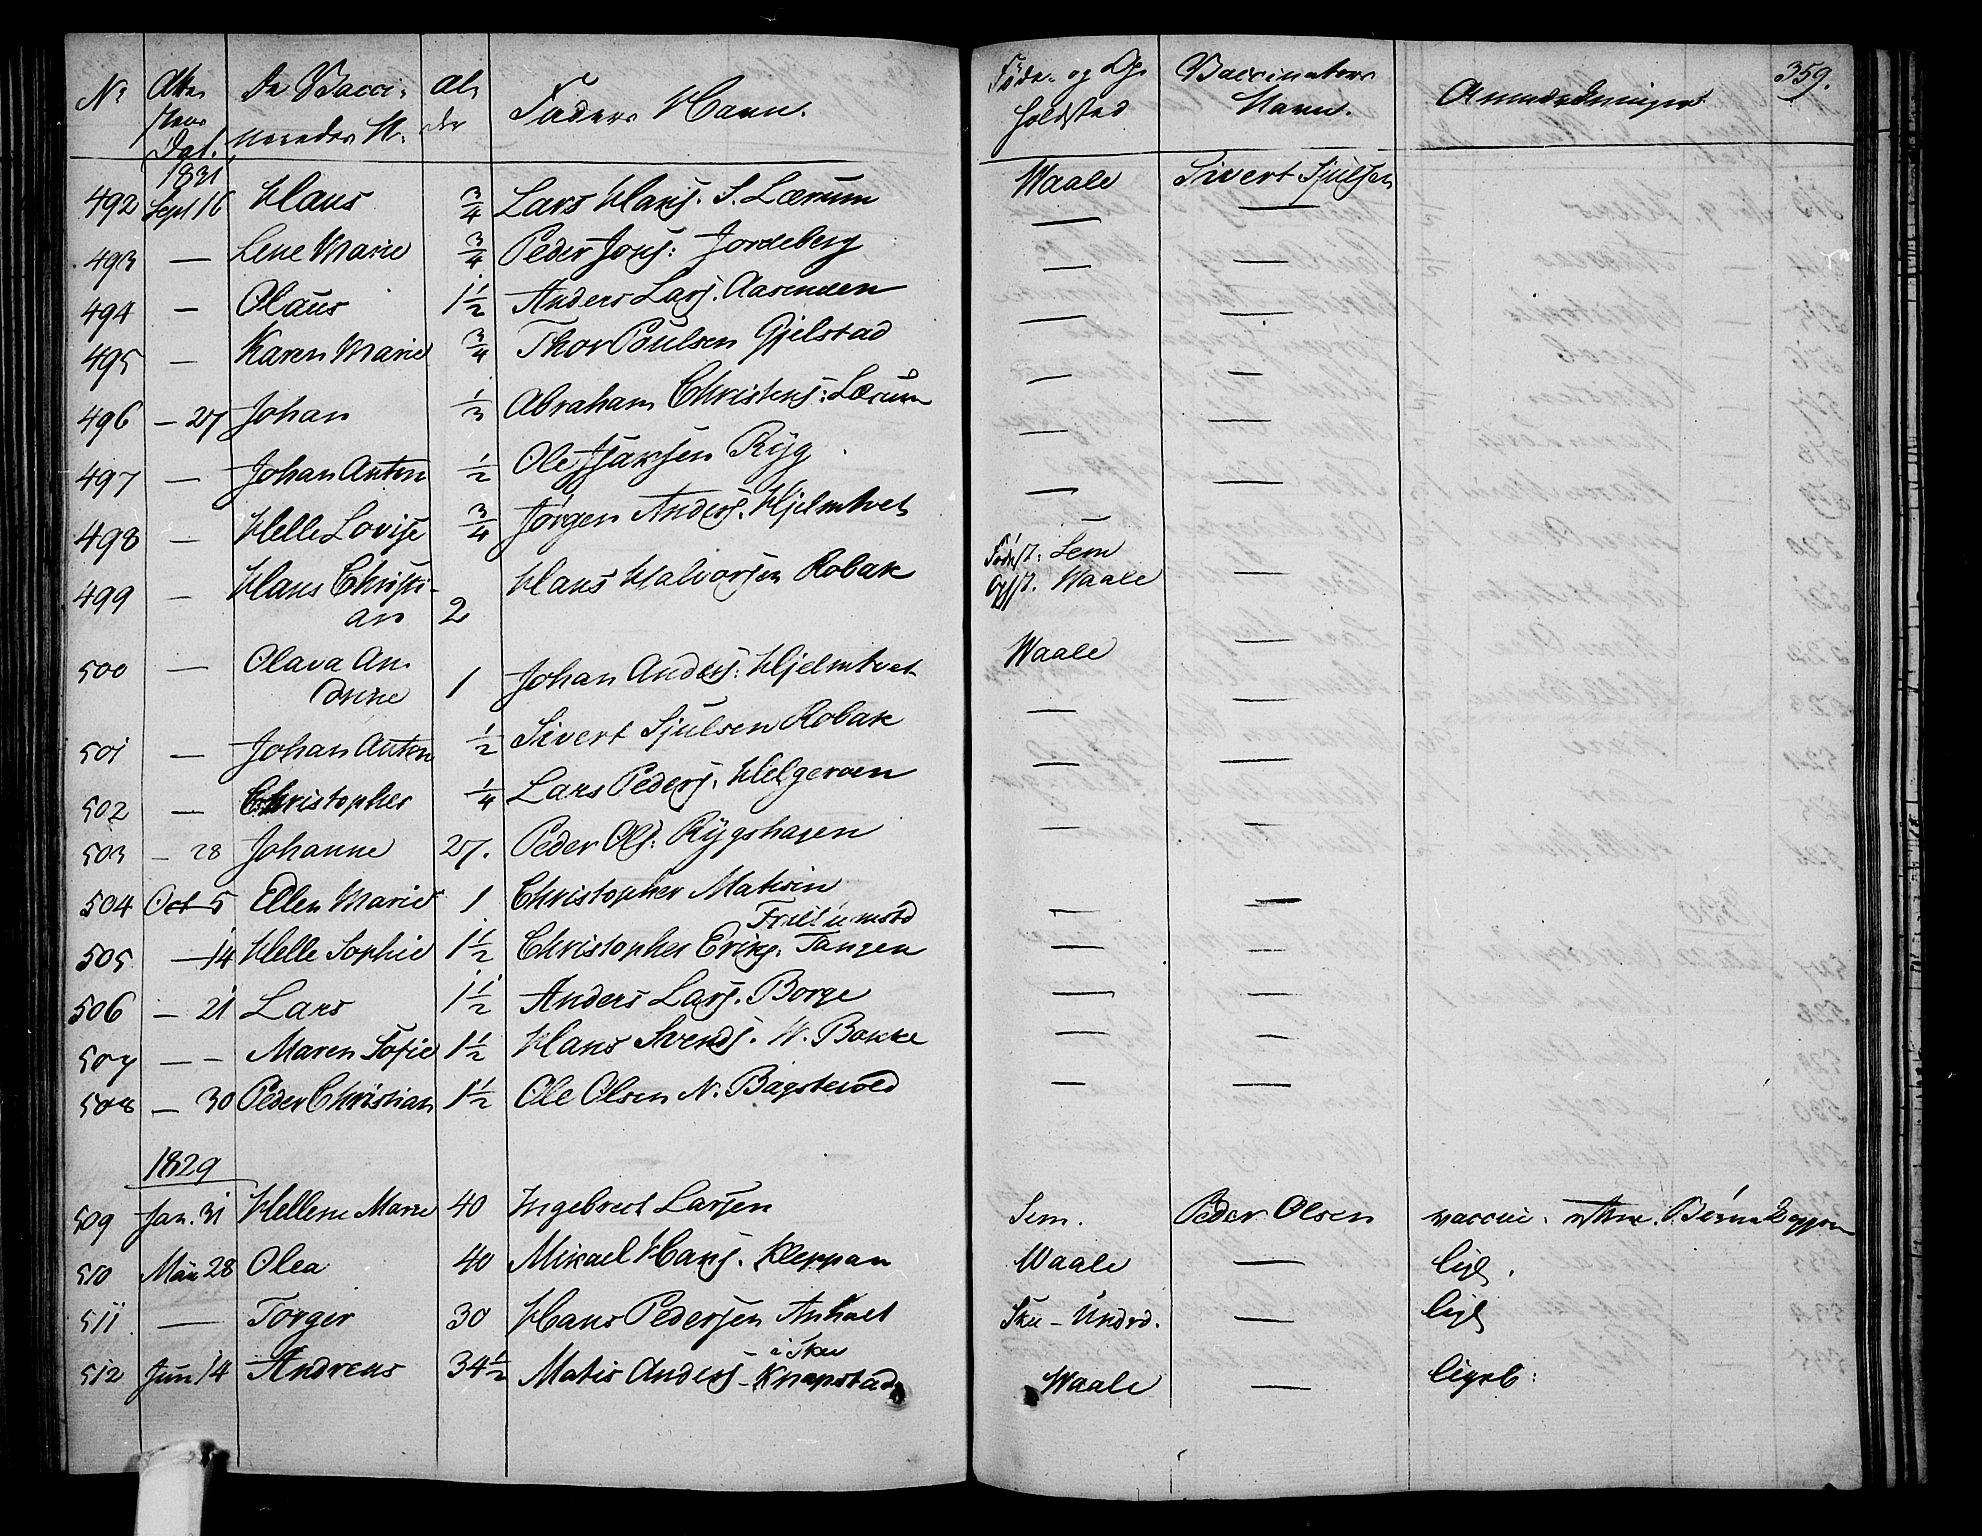 359.
No Atte- De Vacci- Al- Faders Navn. Føde- og Op- Vaccinators Anmærkninger
stens neredes N. der holdsted Navn.
Dat.
1831
492 Sept 16 Hans 3/4 Lars Hansj. S. Lærum Waale Sivert Sjulsen
493 — Lene Marie 3/4 Peder Jonsj: Jordeberg — —
494 — Olaus 1 1/2 Anders Larsj. Aasenden — —
495 — Karen Marie 3/4 Thor Poulsen Gjelstad — —
496 — 27 Johan 1/3 Abraham Christensj: Lærum — —
497 — Johan Anton 1/2 Ole Isaksen Ryg — —
498 — Helle Lovise 3/4 Jørgen Andersj. Hjelmtvet — —
499 — Hans Christi- Hans Halvorsen Robak Fødst: Sem —
an 2 Opst. Waale
500 — Olava An- Waale —
drine 1 Johan Andersj: Hjelmtvet
501 — Johan Anton 1/2 Sivert Sjulsen Robak — —
502 — Christopher 1/4 Lars Pedersj. Helgeroen — —
503 — 28 Johanne 27. Peder Olsj: Rygshagen — —
504 Oct 5 Ellen Marie 1 Christopher Mat — —
505 — 14 Helle Sophie 1 1/2 Christopher Eriksj. Tangen — —
506 — 21 Lars 1 1/2 Anders Larsj. Borge — —
507 — — Maren Sofie 1 1/2 Hans Svendsj. N. Bakke — —
508 — 30 Peder Christian 1 1/2 Ole Olsen N. Bagstevold — —
1829
509 Jan. 31 Hellene Marie 40 Ingebret Larsen Sem. Peder Olsen vaccin.
510 Mai 28 Olea 40 Mikael Hansj. Kleppan Waale — ligl.
511 — Torger 30 Hans Pedersen Anholt Sku — Undrd. — ligl
i Sku
512 Jun 14 Andreas 34 1/2 Matis Andersj — Knapstad Waale —